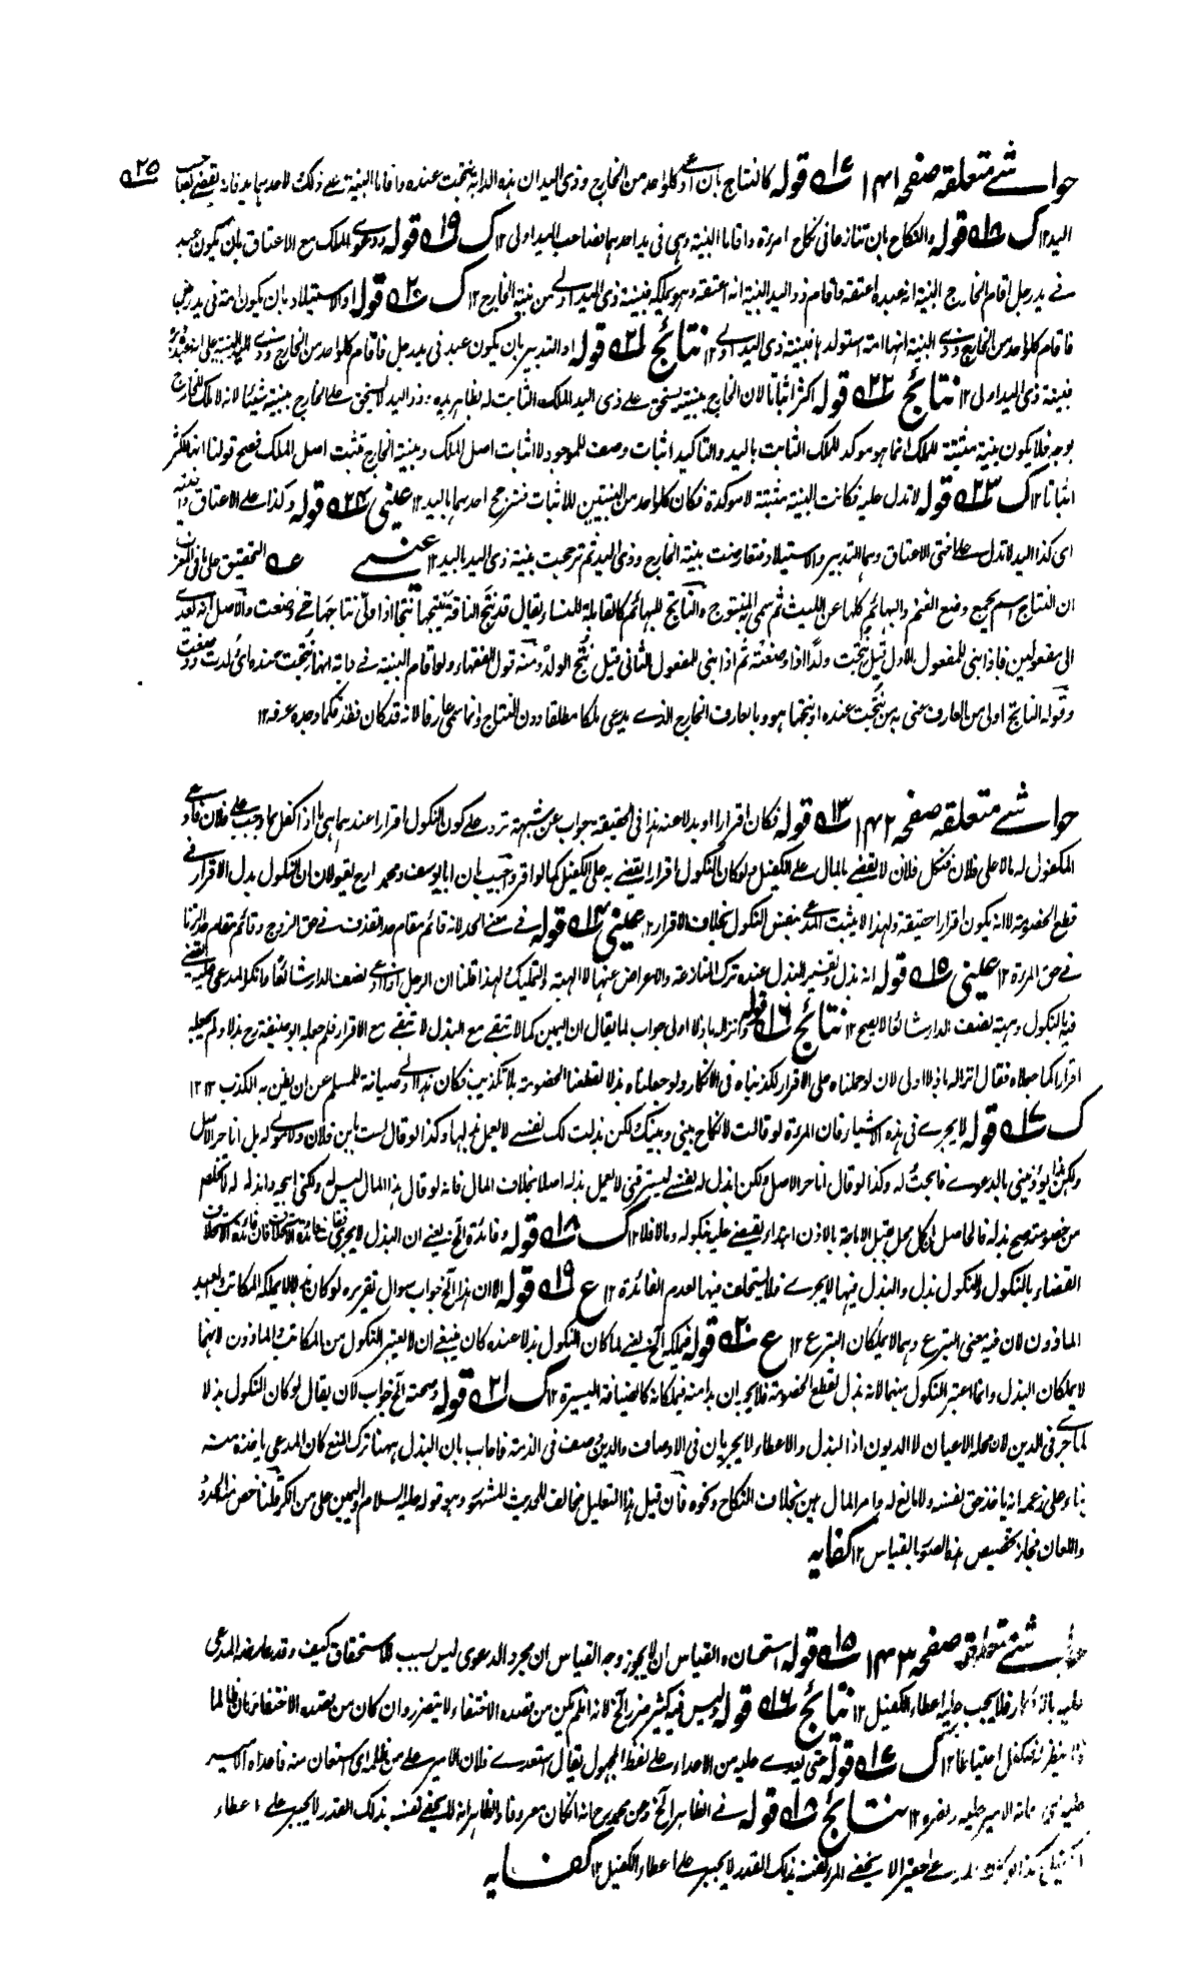 ۲۵
حواشے متعلقہ صفحہ ۱۴۱ ۱۷ قوله كالنتاج بان ادعى كلواحد من الخارج وذى اليد ان هذه الدابة نتجت عنده واقاما البينة على ذلك لاحدهما يد فانه يقضى لصاحب
اليد ۱۲ ك ۱۸ قوله والنكاح بان تنازعا فى نكاح امرءة واقاما البينة وهى فى يد احدهما فصاحب اليد اولى ۱۲ ك ۱۹ قوله ودعوى الملك مع الاعتاق بان يكون عبد
فى يد رجل اقام الخارج البينة انه عبده اعتقه واقام ذو اليد البينة انه اعتقه وهو يملكه فبينة ذى اليد اولى من بينة الخارج ۱۲ ك ۲۰ قوله او الاستيلاد بان يكون امة فى يد رجل
فاقام كلواحد من الخارج وذى اليد البينة انها امته استولدها فبينة ذى اليد اولى ۱۲ نتائج ۲۱ قوله او التدبير بان يكون عبد فى يد رجل فاقام كلواحد من الخارج وذى اليد البينة على انه عبده دبره
فبينة ذى اليد اولى ۱۲ نتائج ۲۲ قوله اكثر اثباتا لان الخارج ببينته يستحق على ذى اليد الملك الثابت له بظاهر يده وذو اليد لا يستحق على الخارج ببينته شيئا لانه لا ملك للخارج
بوجه فلا يكون بينته مثبتة للملك انما هو موكد للملك الثابت باليد والتاكيد اثبات وصف للموجود لا اثبات اصل الملك وبينة الخارج تثبت اصل الملك فصح قولنا انها اكثر
اثباتا ۱۲ ك ۲۳ قوله لا تدل عليه فكانت البينة مثبتة لا موكدة فكان كلواحد من البينتين للاثبات فترجح احدهما باليد ۱۲ عينى ۲۴ قوله وكذا على الاعتاق واختيه
اى كذا اليد لا تدل على اختى الاعتاق وهما التدبير والاستيلاد فتعارضت بينة الخارج وذى اليد ثم ترجحت بينة ذى اليد باليد ۱۲ عينى عه التحقيق على ما فى المغرب
ان النتاج اسم يجمع وضع الغنم والبهائم كلها عن الليث ثم سمى به المنتوج والناتج للبهائم كالقابلة للنساء ويقال قد نتج الناقة ينتجها نتجا اذا ولى نتاجها حتى وضعت والاصل انه يعدى
الى مفعولين فاذا بنى للمفعول الاول قيل نتجت ولدا اذا وضعته ثم اذا بنى للمفعول الثانى قيل نتج الولد ومنه قول الفقهاء ولو اقام البينة فى دابة انها نتجت عنده اى ولدت ووضعت
وقوله الناتج اولى من العارف عنى به من نتجت عنده او نتجها هو وبالعارف الخارج الذى يدعى ملكا مطلقا دون النتاج وانما سمى عارفا لانه قد كان فقده فلما وجده عرفه ۱۲
حواشے متعلقہ صفحہ ۱۴۲ ۱۳ قوله فكان اقرارا او بدلا عنه هذا فى الحقيقة جواب عن شبهة ترد على كون النكول اقرارا عندهما هى ما اذا كفل بما وجب على فلان فادعى
المكفول له مالا على فلان فنكل فلان لا يقضى بالمال على الكفيل ولو كان النكول اقرارا يقضى به على الكفيل كما لو اقر واجيب بان ابا يوسف ومحمد رح يقولان ان النكول بدل الاقرار فى
قطع الخصومة لا انه يكون اقرارا حقيقة ولهذا لا يثبت المدعى بنفس النكول بخلاف الاقرار ۱۲ عينى ۱۴ قوله فى معنى الحد لانه قائم مقام حد القذف فى حق الزوج وقائم مقام حد الزنا
فى حق المرءة ۱۲ عينى ۱۵ قوله انه بذل وتفسير البذل عنده ترك المنازعة والاعراض عنها لا الهبة والتمليك ولهذا قلنا ان الرجل اذا ادعى نصف الدار شائعا وانكر المدعى عليه يقضى
فيه بالنكول وهبة نصف الدار شائعا لا يصح ۱۲ نتائج ۱۶ قوله وانزاله باذلا اولى جواب لما يقال ان اليمين كما لا تبقى مع البذل لا تبقى مع الاقرار فلم جعله ابو حنيفة رح بذلا ولم يجعله
اقرارا كما جعلاه فقال انزاله باذلا اولى لان لو حملناه على الاقرار لكذبناه فى الانكار ولو جعلناه بذلا لقطعنا الخصومة بلا تكذيب فكان هذا اولى وصيانة للمسلم عن ان يظن به الكذب ۱۲ ۱۲
ك ۱۷ قوله لا يجرى فى هذه الاشياء فان المرءة لو قالت لا نكاح بينى وبينك لكن بذلت لك نفسى لا يعمل بذلها وكذا لو قال لست بابن فلان ولا مولى له بل انا حر الاصل
ولكن هذا يوذينى بالدعوى فابحت له وكذا لو قال انا حر الاصل ولكن ابذل له نفسى ليسترقنى لا يعمل بذله اصلا بخلاف المال فانه لو قال هذا المال ليس له ولكنى ابيحه وابذله له لاتخلص
من خصومته صح بذله فالحاصل ان كل محل يقبل الاباحة بالاذن ابتداء يقضى عليه بنكوله وما لا فلا ۱۲ ك ۱۸ قوله وفائدة الخ يعنى ان البذل لا يجرى ففات فائدة الاستحلاف فان فائدة الاستحلاف
القضاء بالنكول والنكول بذل والبذل فيها لا يجرى فلا يستحلف فيها لعدم الفائدة ۱۲ ع ۱۹ قوله الا ان هذا الخ جواب سوال تقريره لو كان بذلا لا يملكه المكاتب والعبد
الماذون لان فيه معنى التبرع وهما لا يملكان التبرع ۱۲ ع ۲۰ قوله فيملكه الخ يعنى لما كان النكول بذلا عنده كان ينبغى ان لا يعتبر النكول من المكاتب والماذون لانهما
لا يملكان البذل وانما اعتبر النكول منهما لانه بذل لقطع الخصومة فلا يجدان بدا منه فيملكانه كالضيافة اليسيرة ۱۲ ك ۲۱ قوله وصحته الخ جواب لان يقال لو كان النكول بذلا
لما جرى فى الدين لان محله الاعيان لا الديون اذ البذل والاعطاء لا يجريان فى الاوصاف والدين وصف فى الذمة فاجاب بان البذل ههنا ترك المنع كان المدعى ياخذه منه
بناء على زعمه انه ياخذ حق نفسه ولا مانع له وامر المال هين بخلاف النكاح ونحوه فان قيل هذا التعليل مخالف للحديث المشهور وهو قوله عليه السلام واليمين على من انكر قلنا خص منه الحدود
واللعان فجاز تخصيص هذه الصور بالقياس ۱۲ كفايه
حواشے متعلقہ صفحہ ۱۴۳ ۱۵ قوله استحسان والقياس ان لا يجوز وجه القياس ان مجرد الدعوى ليس بسبب للاستحقاق كيف وقد عارضه المدعى
عليه بالانكار فلا يجب عليه اعطاء الكفيل ۱۲ نتائج ۱۶ قوله وليس فيه كثير ضرر الخ لانه اذا لم يكن من قصده الاختفاء لا يتضرر وان كان من قصده الاختفاء كان ظالما
ينظر له فيكفل احتياطا ۱۲ ك ۱۷ قوله حتى يعدى عليه من الاعداء على لفظ المجهول يقال استعدى فلان الامير على من ظلمه اى استعان منه فاعداه الامير
عليه اى اعانه الامير عليه ونصره ۱۲ نتائج ۱۸ قوله فى الظاهر الخ وعن محمد رح انه اذا كان معروفا والظاهر انه لا يخفى نفسه بذلك القدر لا يجبر على اعطاء
الكفيل وكذا لو كان المدعى حقيرا لا يخفى المرء نفسه بذلك القدر لا يجبر على اعطاء الكفيل ۱۲ كفايه